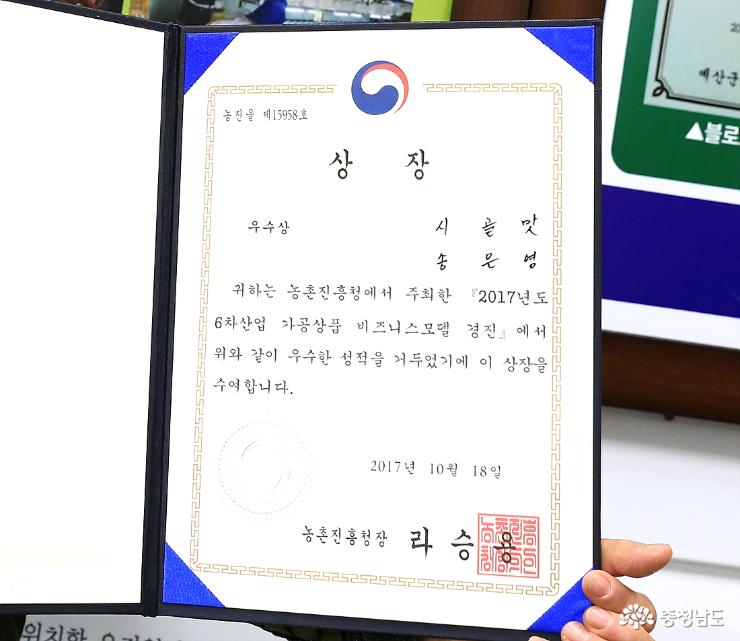 농진을 제15958호
상 장
우수상
시 골 맛
송 은 영
귀하는 농촌진흥청에서 주최한 『2017년도
6차산업 가공상품 비즈니스모델 경진』에서
위와 같이 우수한 성적을 거두었기에 이 상장을
수여합니다.
2017년 10월 18일
농촌진흥청장 라 승 용
예산군
▲블로
위치한
충청남도